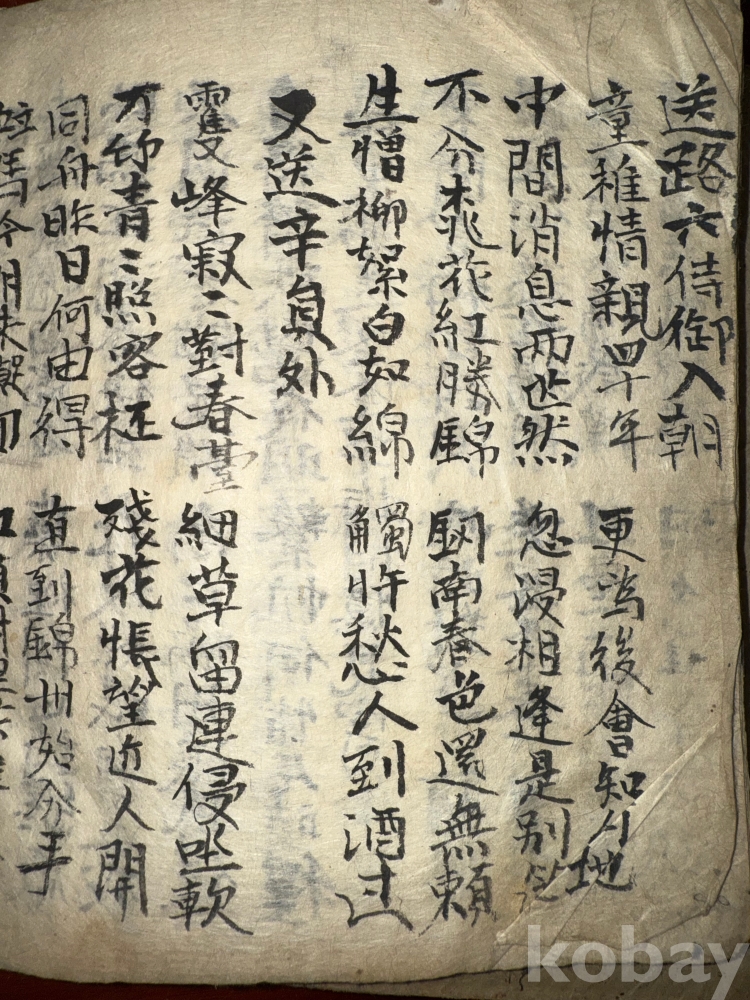 送路六侍御入朝
童稚情親四十年 更為後會知何地
中間消息兩茫然 忽漫相逢是別筵
不分桃花紅勝錦 劒南春色還無賴
生憎柳絮白如綿 觸忤愁人到酒邊
又送辛員外
雙峰寂〻對春臺 細草留連侵坐軟
万竹青〻照客杯 殘花悵望近人開
同舟昨日何由得 直到錦州始分手
今朝未
kobay